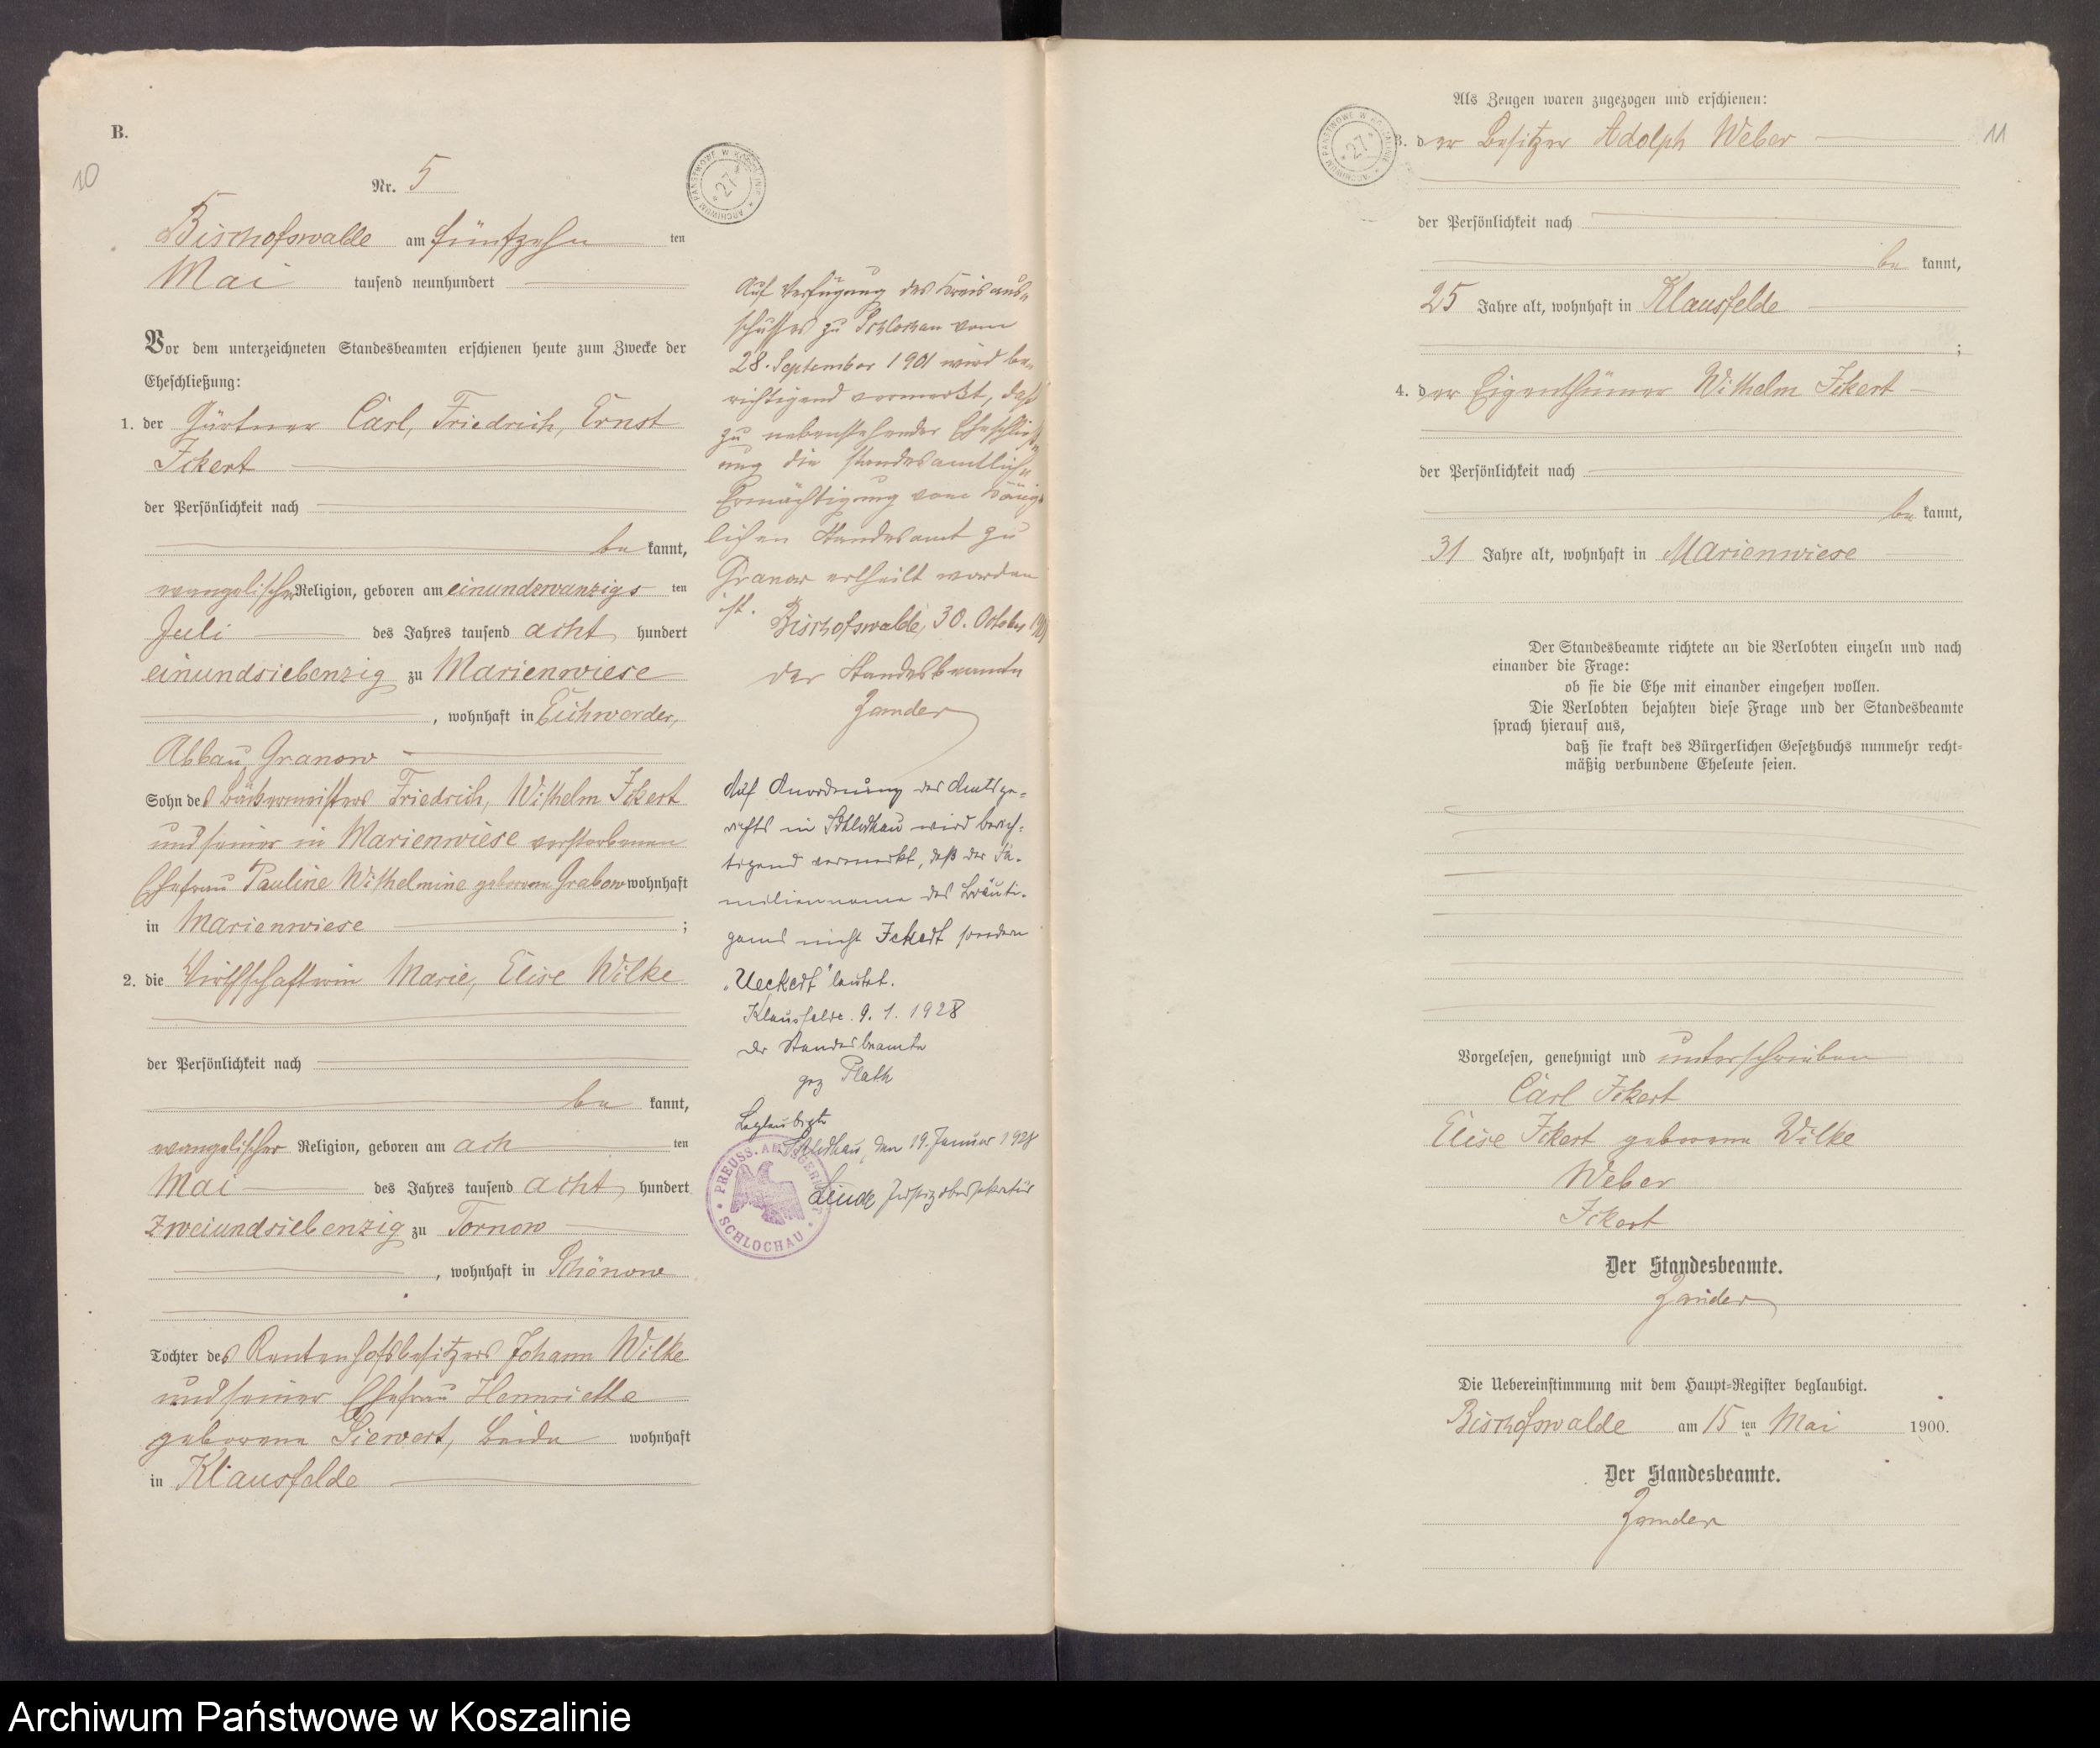 B.
10
Nr. 5
Bischofswalde am fünfzehn ten
Mai tausend neunhundert
Vor dem unterzeichneten Standesbeamten erschienen heute zum Zwecke der
Eheschließung:
1. der Gärtner Carl, Friedrich, Ernst
Ickert
der Persönlichkeit nach
be kannt,
evangelischer Religion, geboren am einundzwanzigs ten
Juli des Jahres tausend acht hundert
einundsiebenzig zu Marienwiese
, wohnhaft in Eichwerder,
Abbau Granow
Sohn des Friedrich, Wilhelm Ickert
und seiner in Marienwiese verstorbenen
Ehefrau Pauline Wilhelmine geborene Grabow wohnhaft
in Marienwiese ;
2. die Wirthschafterin Marie, Elise Wilke
der Persönlichkeit nach
be kannt,
evangelischer Religion, geboren am ach ten
Mai des Jahres tausend acht hundert
zweiundsiebenzig zu Tornow
, wohnhaft in Schönow
Tochter des Rentenhofsbesitzers Johann Wilke
und seiner Ehefrau Hennriette
geborene Siewert, beide wohnhaft
in Klausfelde
ARCHIWUM PAŃSTWOWE W KOSZALINIE
* 27 *
Auf Verfügung des Kreisaus-
schusses zu Schlochau vom
28. September 1901 wird be-
richtigend vermerkt, daß
zu nebenstehender Eheschließ-
ung die standesamtlich-
Ermächtigung vom König-
lichen Standesamt zu
Granow ertheilt worden
ist.
Bischofswalde, 30. October 1901
Der Standesbeamte
Zander
Auf Anordnung des Amtsge-
richts in Schlochau wird berich-
tigend vermerkt, daß der Fa-
milienname des Bräuti-
gams nicht Ickert sondern
"Ueckert" lautet.
Klausfelde. 9. 1. 1928
Der Standesbeamte
gez Plath
Beglaubigt
Schlochau, den 19. Januar 1928
Justizobersekretär
PREUSS. AMTSGERICHT
* SCHLOCHAU *
Als Zeugen waren zugezogen und erschienen:
11
ARCHIWUM PAŃSTWOWE W KOSZALINIE
* 27 *
3. der Besitzer Adolph Weber
der Persönlichkeit nach
be kannt,
25 Jahre alt, wohnhaft in Klausfelde
;
4. der Eigenthümer Wilhelm Ickert
der Persönlichkeit nach
be kannt,
31 Jahre alt, wohnhaft in Marienwiese
Der Standesbeamte richtete an die Verlobten einzeln und nach
einander die Frage:
ob sie die Ehe mit einander eingehen wollen.
Die Verlobten bejahten diese Frage und der Standesbeamte
sprach hierauf aus,
daß sie kraft des Bürgerlichen Gesetzbuchs nunmehr recht-
mäßig verbundene Eheleute seien.
Vorgelesen, genehmigt und unterschrieben
Carl Ickert
Elise Ickert geborene Wilke
Weber
Ickert
Der Standesbeamte.
Zander
Die Uebereinstimmung mit dem Haupt-Register beglaubigt.
Bischofswalde am 15 ten Mai 1900.
Der Standesbeamte.
Zander
Archiwum Państwowe w Koszalinie